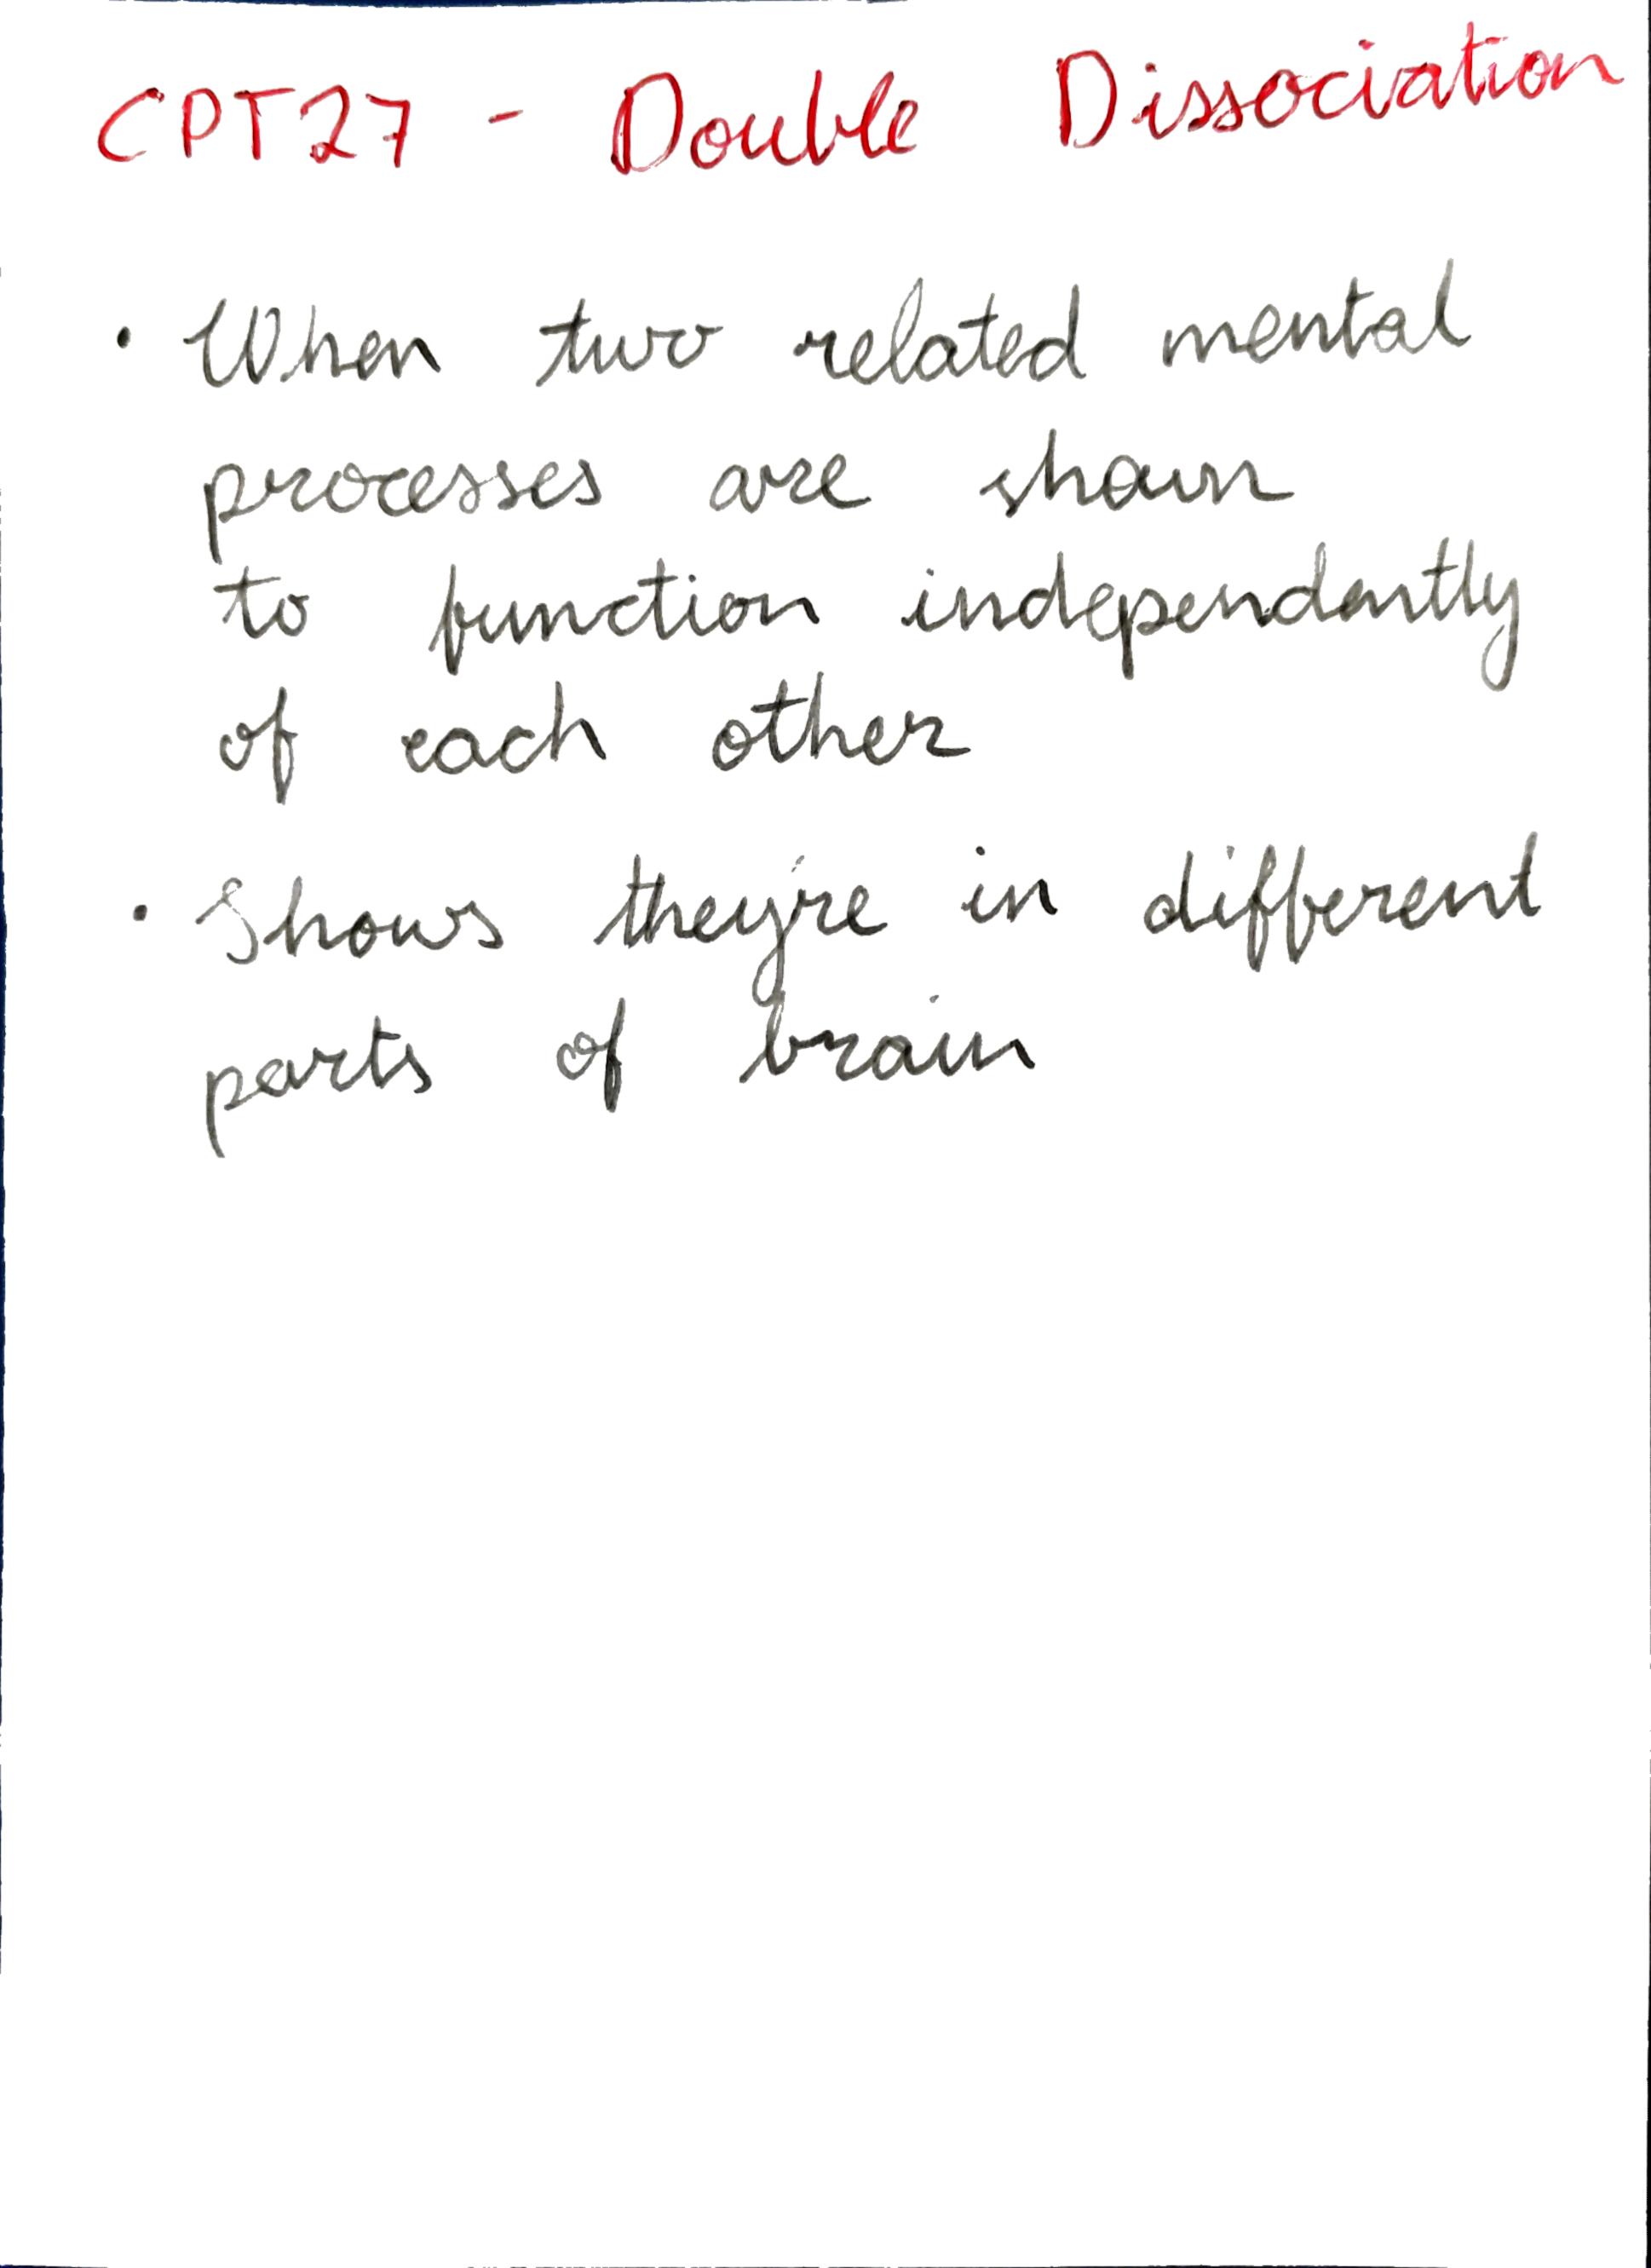 CPT27 - Double Dissociation
• When two related mental
processes are shown
to function independently
of each other
• Shows they're in different
parts of brain